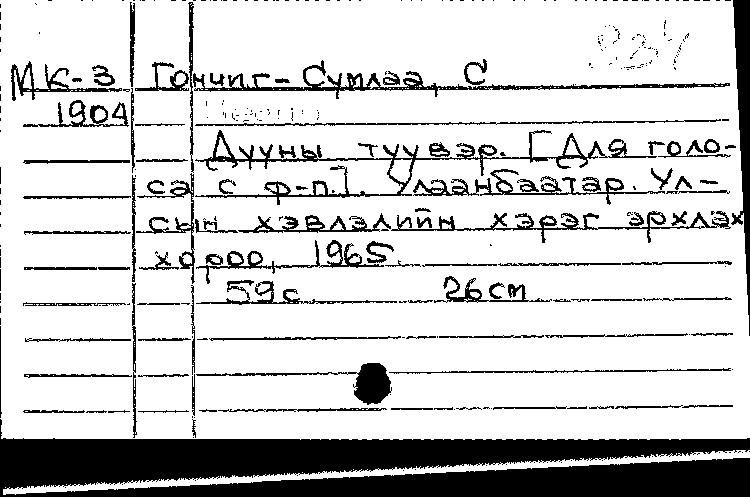 934
МК-3 Гончиг-Сумлаа, С
1904
Дууны түүвэр. [Для голо-
са с ф-п.]. Улаанбаатар. Ул-
сын хэвлэлийн хэрэг эрхлэх
хороо, 1965.
59 с. 26 cm